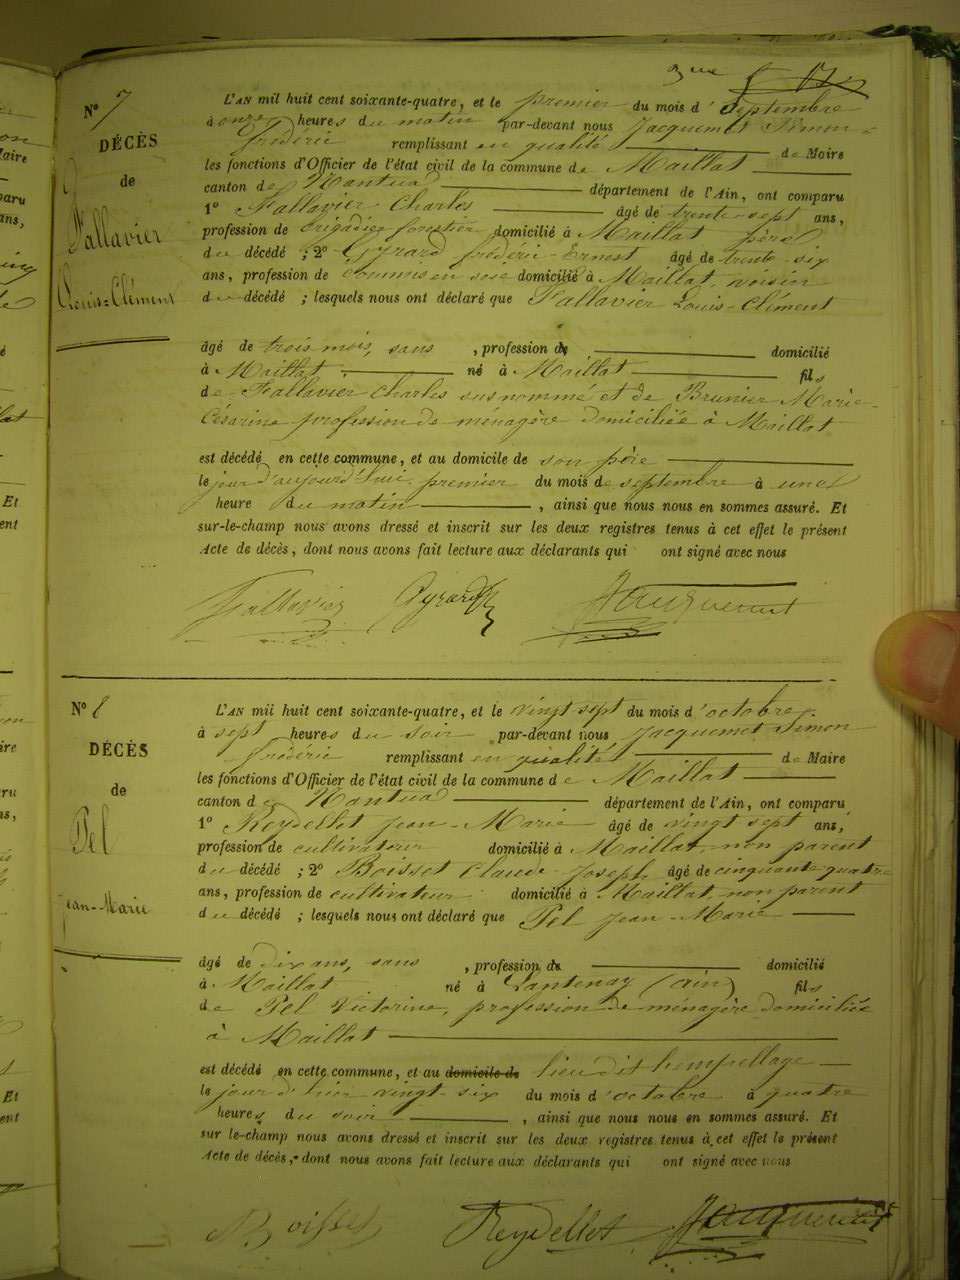 N° 7
DÉCÈS
de
Fallavier
Louis=Clément
L'AN mil huit cent soixante-quatre, et le premier du mois d'septembre
à onze heures du matin par-devant nous Jacquemet Simon=
frédéric remplissant en qualité de Maire
les fonctions d'Officier de l'état civil de la commune de Maillat
canton de Nantua département de l'Ain, ont comparu
1° Fallavier Charles âgé de trente-sept ans,
profession de brigadier forestier domicilié à Maillat père
du décédé ; 2° Gyrard frédéric-Ernest âgé de trente-six
ans, profession de commis en soie domicilié à Maillat, voisin
du décédé ; lesquels nous ont déclaré que Fallavier Louis-Clément
âgé de trois mois, sans , profession de domicilié
à Maillat né à Maillat fils
de Fallavier Charles susnommé et de Brunier Marie-
Césarine profession de ménagère domiciliée à Maillat
est décédé en cette commune, et au domicile de son père
le jour d'aujourd'hui premier du mois de septembre à une
heure du matin , ainsi que nous nous en sommes assuré. Et
sur-le-champ nous avons dressé et inscrit sur les deux registres tenus à cet effet le présent
Acte de décès, dont nous avons fait lecture aux déclarants qui ont signé avec nous
Fallavier Gyrard Jacquemet
N° 8
DÉCÈS
de
Pel
Jean-Marie
L'AN mil huit cent soixante-quatre, et le vingt sept du mois d'octobre
à sept heures du soir par-devant nous Jacquemet Simon
frédéric remplissant en qualité de Maire
les fonctions d'Officier de l'état civil de la commune de Maillat
canton de Nantua département de l'Ain, ont comparu
1° Reydellet Jean-Marie âgé de vingt sept ans,
profession de cultivateur domicilié à Maillat, non parent
du décédé ; 2° Boisset Claude-Joseph, âgé de cinquante-quatre
ans, profession de cultivateur domicilié à Maillat, non parent
du décédé ; lesquels nous ont déclaré que Pel Jean-Marie
âgé de dix ans, sans , profession de domicilié
à Maillat né à Lantenay (ain) fils
de Pel Victorine, profession de ménagère domiciliée
à Maillat
est décédé en cette commune, et au domicile de lieu dit
le jour d'hier vingt-six du mois d'octobre à quatre
heures du soir , ainsi que nous nous en sommes assuré. Et
sur le-champ nous avons dressé et inscrit sur les deux registres tenus à cet effet le présent
Acte de décès, dont nous avons fait lecture aux déclarants qui ont signé avec nous
Boisset Reydellet Jacquemet